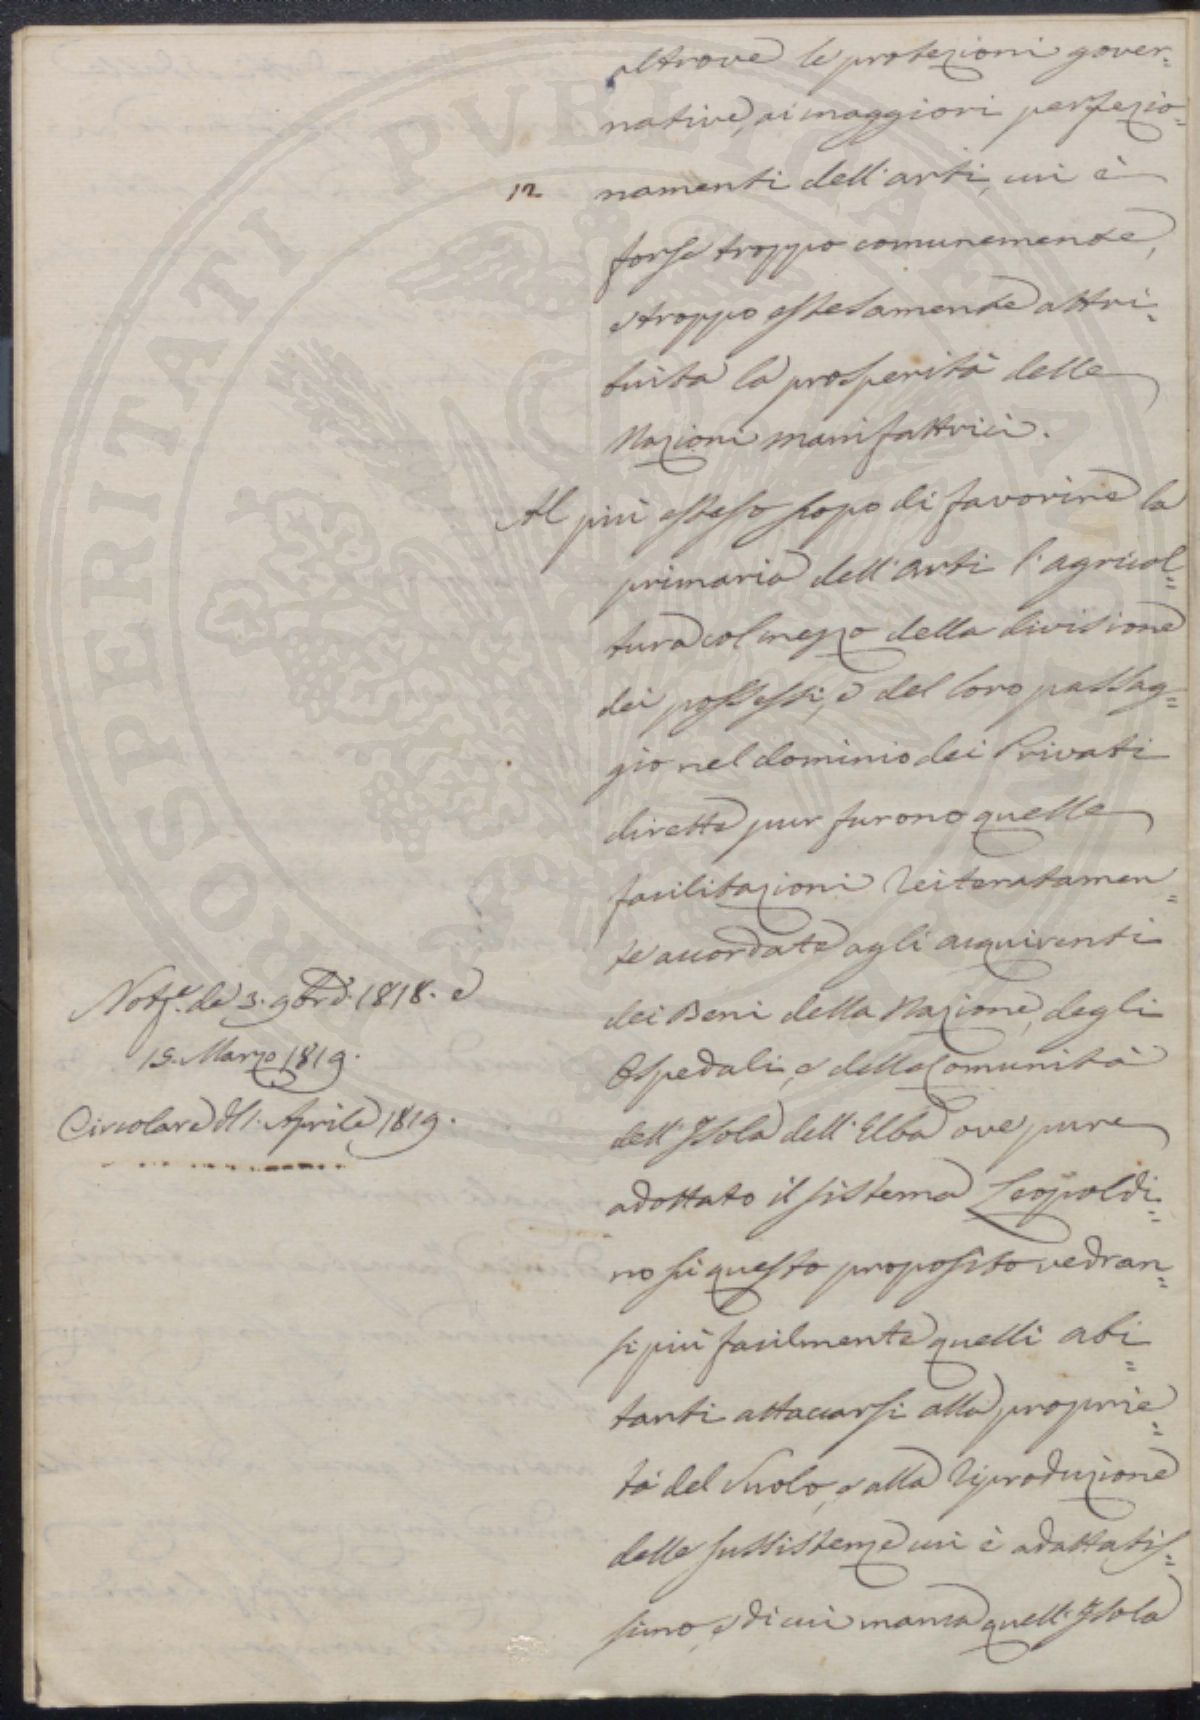 altrove le protezioni gover=
native, ai maggiori perfezio=
12 namenti dell'arti, cui è
forse troppo comunemente,
e troppo estesamente attri=
buita la prosperità delle
Nazioni manifattrici.
Al più esteso scopo di favorire la
primaria dell'arti l'agricol=
tura col mezzo della divisione
dei possessi, e del loro passag=
gio nel dominio dei Privati
dirette pur furono quelle
facilitazioni reiteratamen=
te accordate agli acquirenti
dei Beni della Nazione, degli
Ospedali, e della Comunità
dell'Isola dell'Elba ove pure
adottato il sistema Leopoldi=
no su questo proposito vedran=
si più facilmente quelli abi=
tanti attaccarsi alla proprie=
tà del Suolo, e alla riproduzione
delle sussistenze cui è adattatis=
simo, e di cui manca quell'Isola
Notif.e de' 3. 9bre 1818. e
15. Marzo 1819.
Circolare del 1. Aprile 1819.
PROSPERITATI PVBLICAE